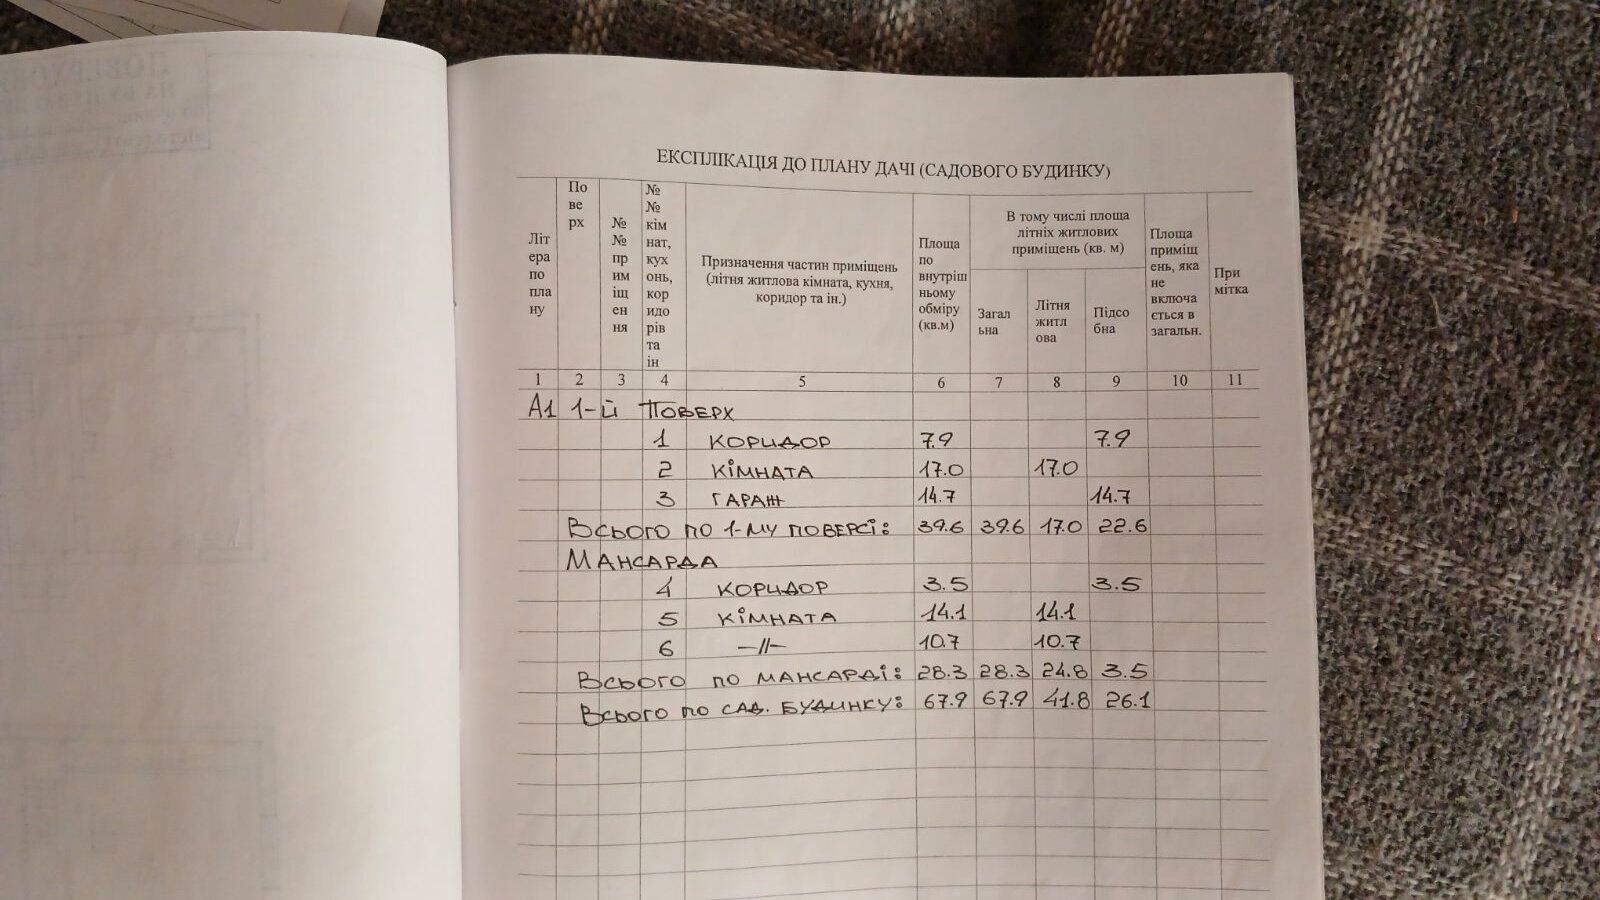 ЕКСПЛІКАЦІЯ ДО ПЛАНУ ДАЧІ (САДОВОГО БУДИНКУ)
Літ ера по пла ну
По ве рх
№ № пр им іщ ен ня
№ № кім нат, кух онь, кор идо рів та ін
Призначення частин приміщень (літня житлова кімната, кухня, коридор та ін.)
Площа по внутріш ньому обміру (кв.м)
В тому числі площа літніх житлових приміщень (кв. м)
Загал ьна
Літня житл ова
Підсо бна
Площа приміщ ень, яка не включа ється в загальн.
При мітка
1 2 3 4 5 6 7 8 9 10 11
А1 1-й ПОВЕРХ
1 КОРИДОР 7.9 7.9
2 КІМНАТА 17.0 17.0
3 ГАРАЖ 14.7 14.7
Всього по 1-му поверсі: 39.6 39.6 17.0 22.6
МАНСАРДА
4 КОРИДОР 3.5 3.5
5 КІМНАТА 14.1 14.1
6 —//— 10.7 10.7
Всього по МАНСАРДІ: 28.3 28.3 24.8 3.5
Всього по сад. будинку: 67.9 67.9 41.8 26.1